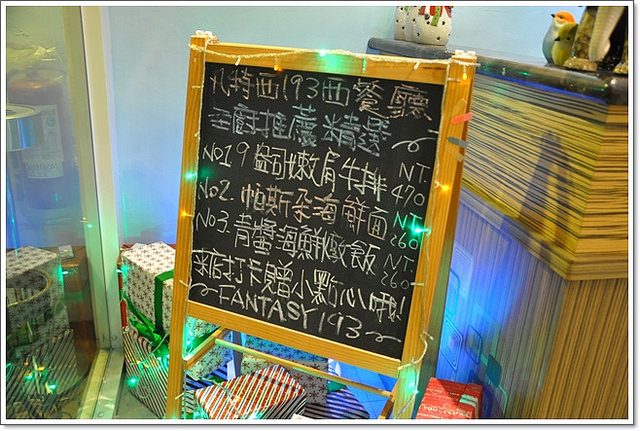 凡特西193西餐廳
主廚推薦精選
No1. 9盎司嫩肩牛排 NT 470
No2. 帕斯朵海鮮面 NT 260
No3. 青醬海鮮燉飯 NT. 260
來店打卡贈小點心哦!
~FANTASY193~